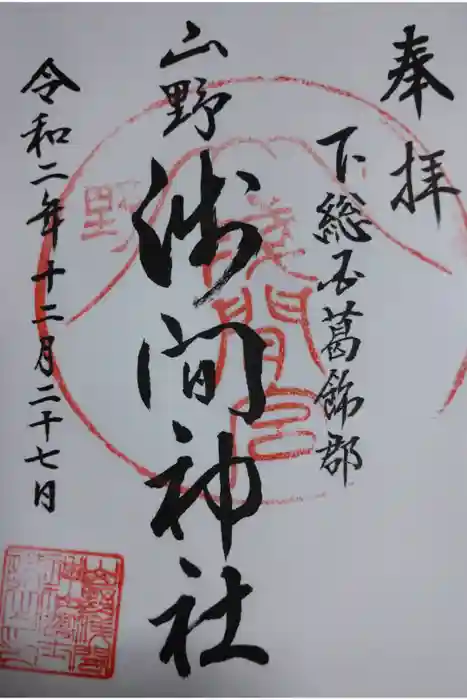 奉拝
下総国葛飾郡
山野
浅間神社
令和二年十二月二十七日